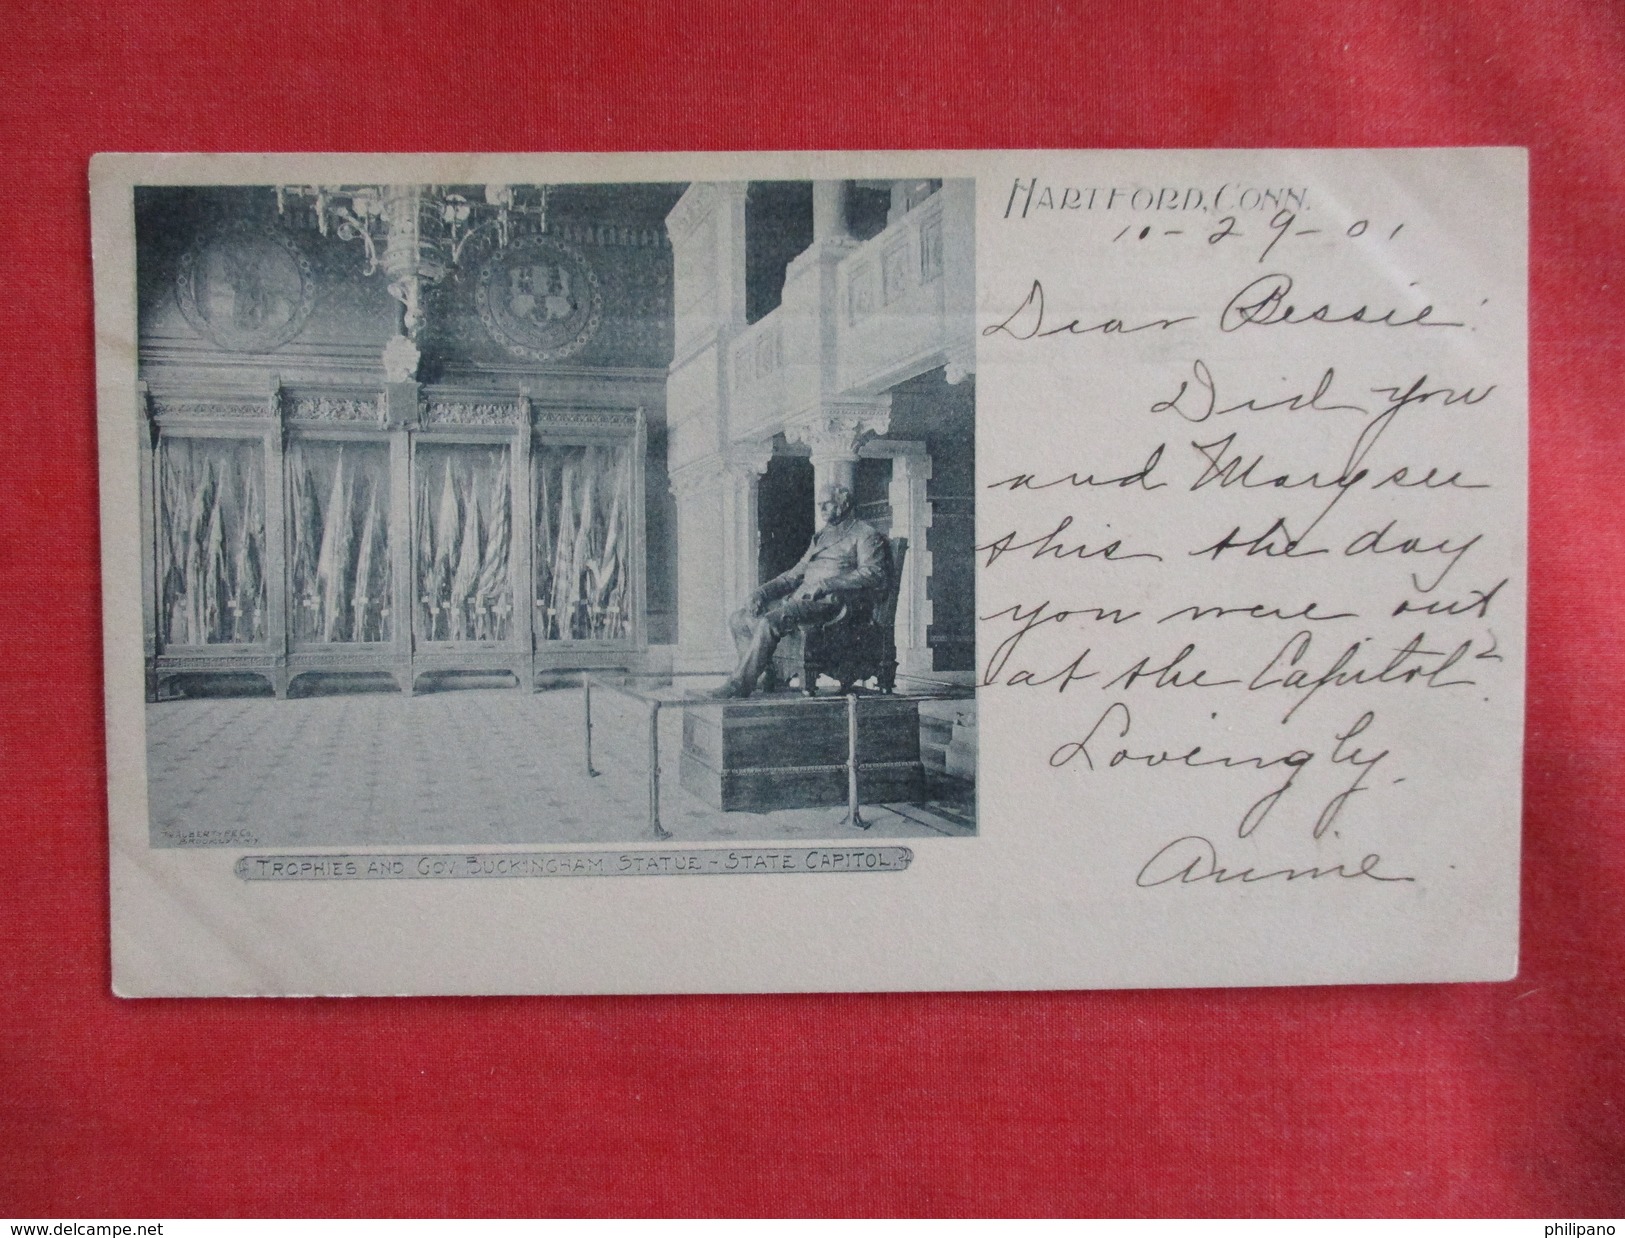 HARTFORD, CONN.
10-29-01
Dear Bessie!
Did you
and Mary see
this the day
you were out
at the Capitol?
Lovingly,
Annie.
THE ALBERTYPE CO.
BROOKLYN, N.Y.
TROPHIES AND GOV. BUCKINGHAM STATUE - STATE CAPITOL.
www.delcampe.net
philipano